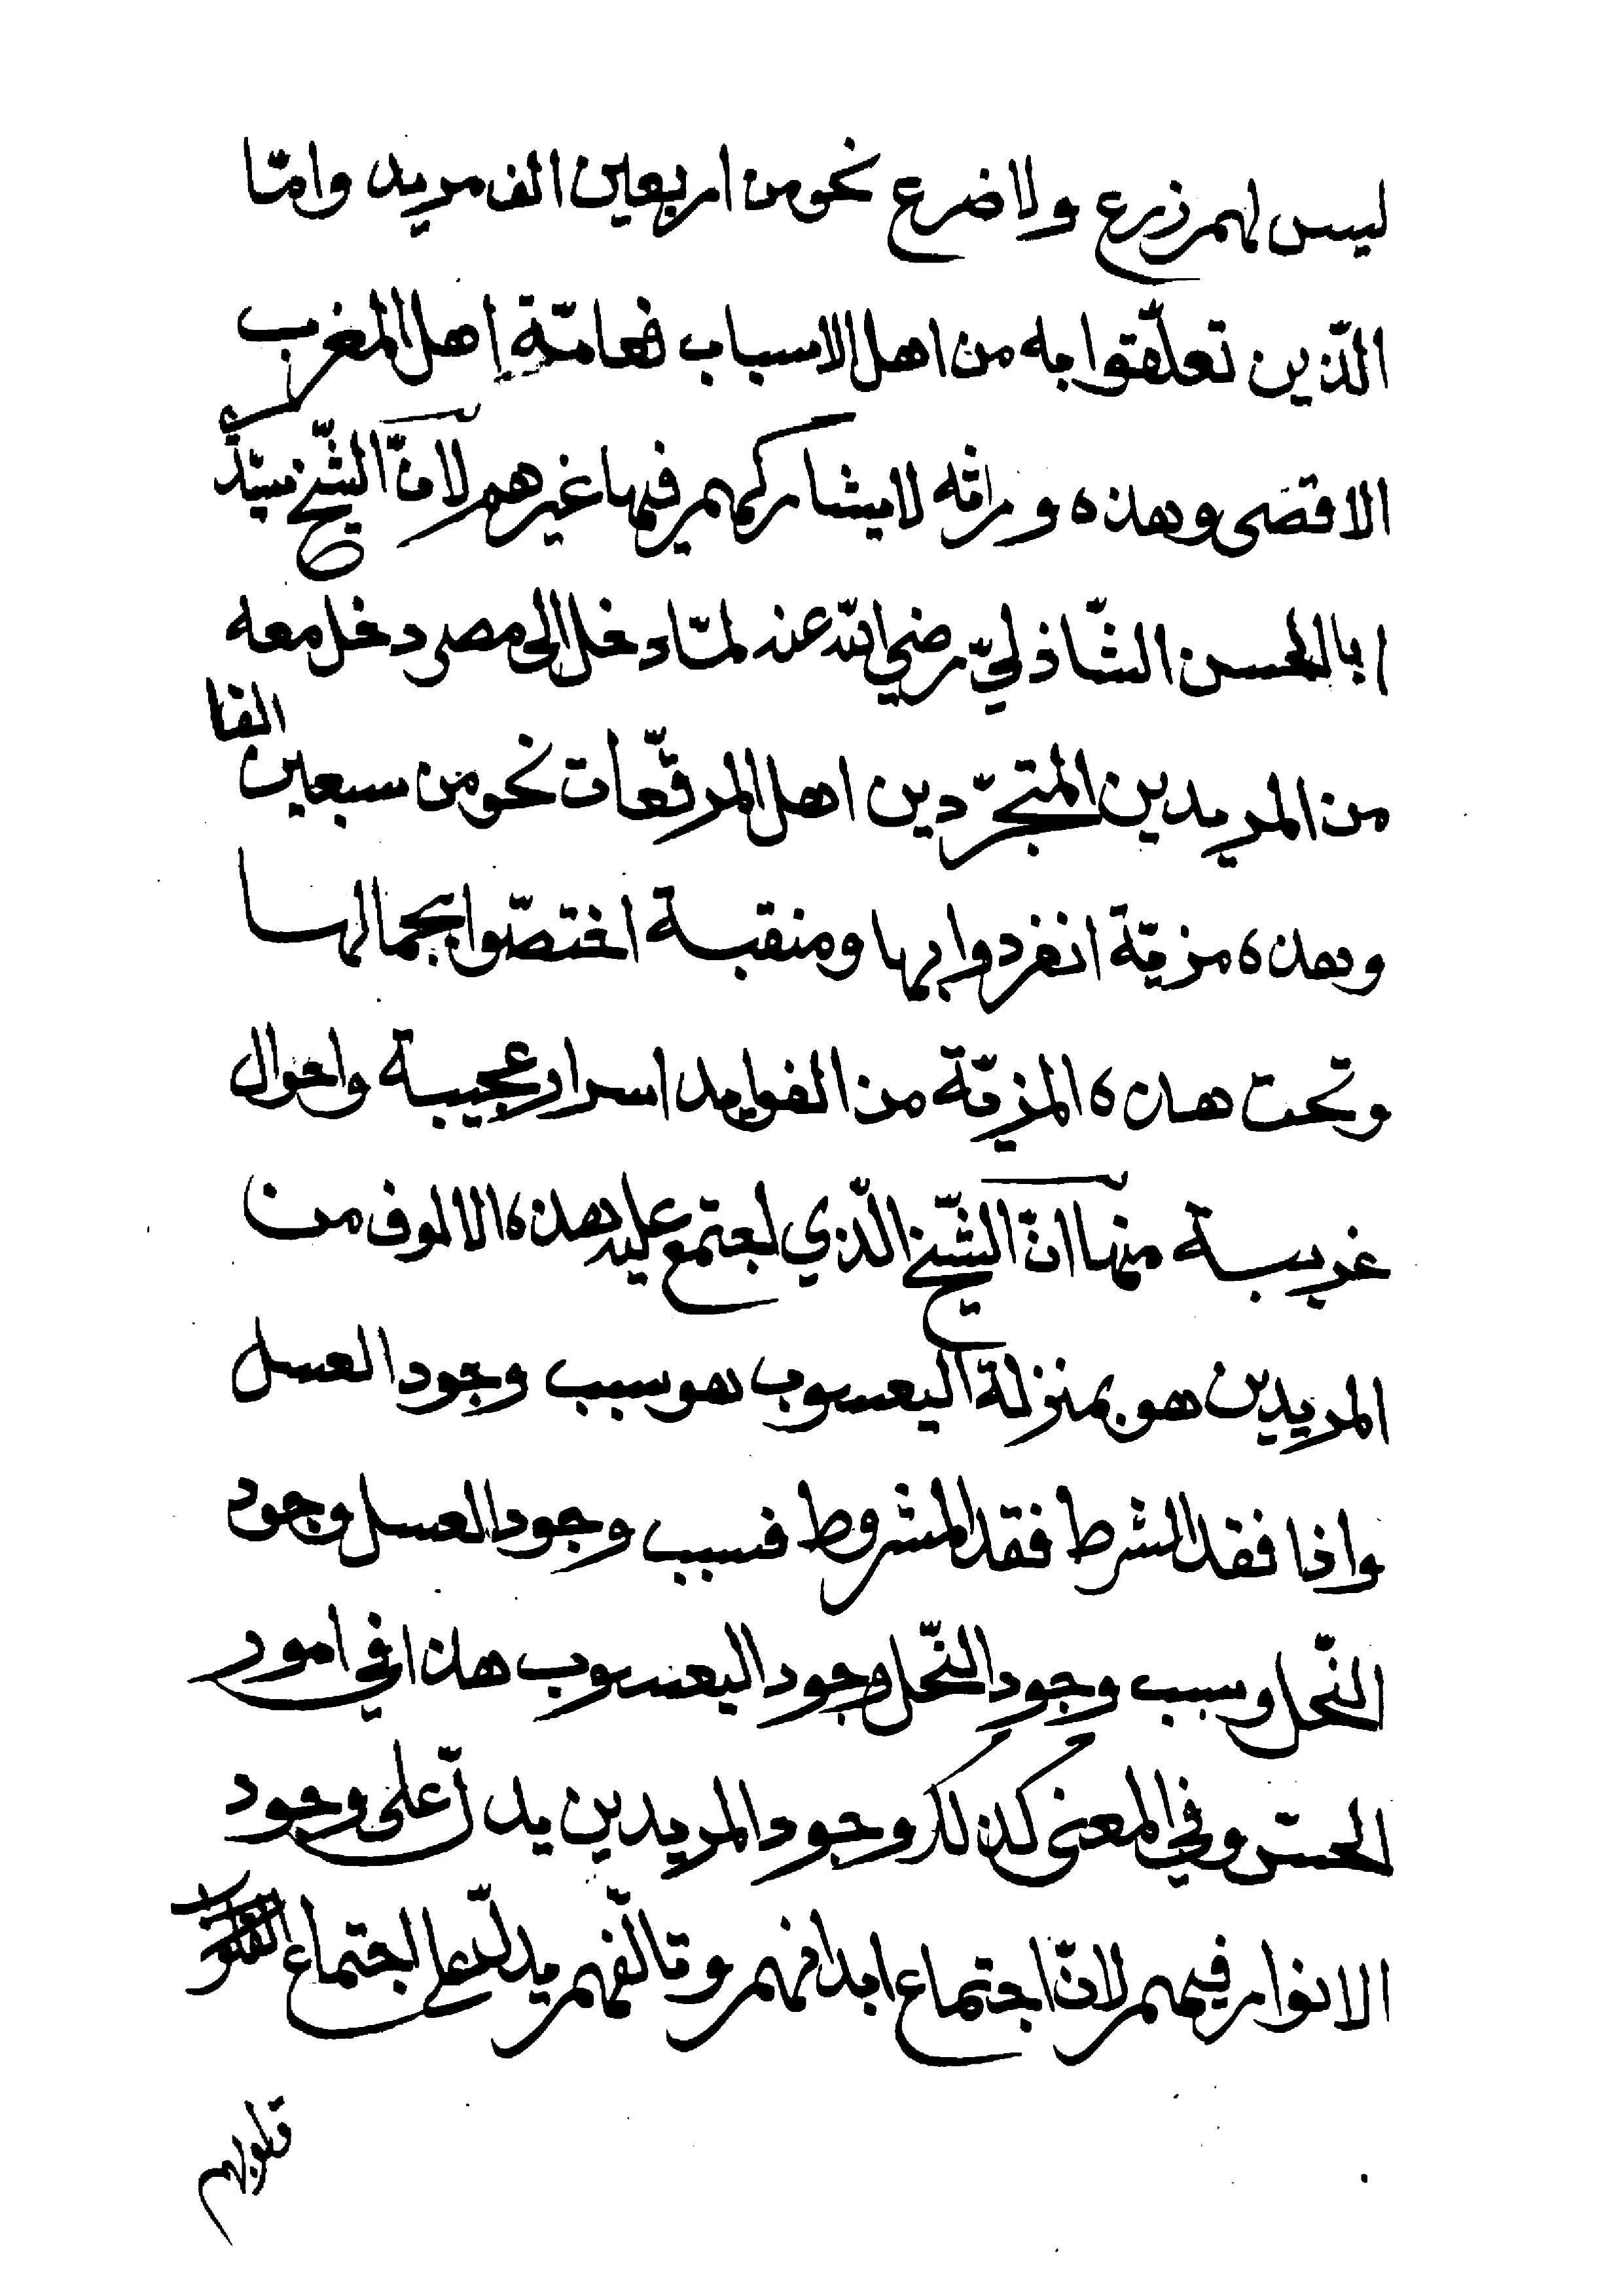 ليس لهم زرع ولا ضرع نحو من اربعين الف مريد وامّا
الّذين تعلّقوا به من اهل الاسباب فعامّة اهل المغرب
الاقصى وهذه وراثه لا يشاركهم فيها غيرهم لانّ الشّيخ سيّدي
ابا الحسن الشّاذليّ رضي الله عنه لمّا دخل الى مصر دخل معه
من المريدين المتجرّدين اهل المرقّعات نحو من سبعين الفا
وهذه مزيّة انفردوا بها ومنقبة اختصّوا بجمالها
وتحت هذه المزيّة من الفوايد اسرار عجيبة واحوال
غريبة منها انّ الشّيخ الّذي اجتمع عليه هذه الالوف من
المريدين هو بمنزلة اليعسوب هو سبب وجود العسل
واذا فقد الشرط فقد المشروط فسبب وجود العسل وجود
النّحل وسبب وجود النّحل وجود اليعسوب هذا في امور
الحسّ وفي المعنى كذلك وجود المريدين يدلّ على وجود
الانوار فيهم لانّ اجتماع ابدانهم وتالّفهم يدلّ على اجتماع
قلوبهم